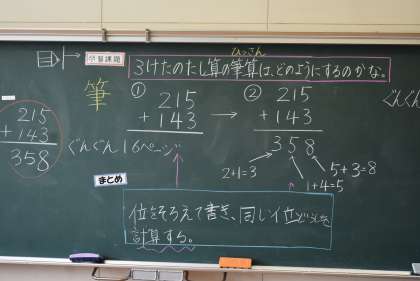 ひっさん
学習課題
3けたのたし算の筆算は、どのようにするのかな。
筆
① 215
+ 143
② 215
+ 143
358
2+1=3
1+4=5
5+3=8
215
+ 143
358
ぐんぐん16ページ
ぐんぐん
まとめ
位をそろえて書き、同じ位どうしを
計算する。